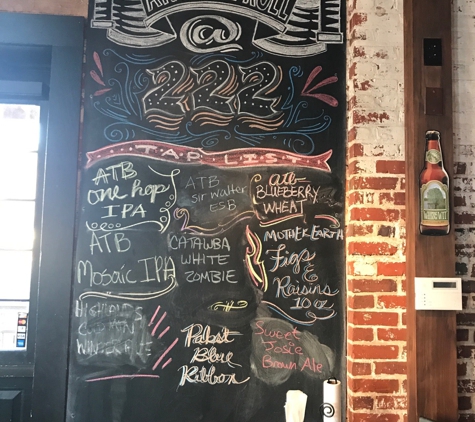 @
222
TAP LIST
ATB
one hop
IPA
ATB
sir walter
ESB
ATB
BLUEBERRY
WHEAT
ATB
Mosaic IPA
CATAWBA
WHITE
ZOMBIE
MOTHER EARTH
Figs
&
Raisins
10 oz
WINTER ALE
Pabst
Blue
Ribbon
Sweet
Josie
Brown Ale